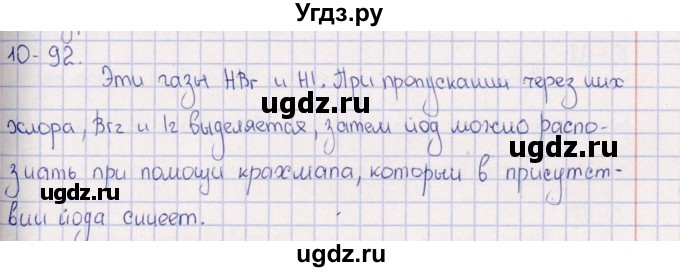 Угдз.ру
10-92.
Эти газы HBr и HI. При пропускании через них
хлора, Br2 и I2 выделяется, затем йод можно распо-
знать при помощи крахмала, который в присутст-
вии йода синеет.
ugdz.ru
ugdz.ru
ugdz.ru
ugdz.ru
ugdz.ru
ugdz.ru